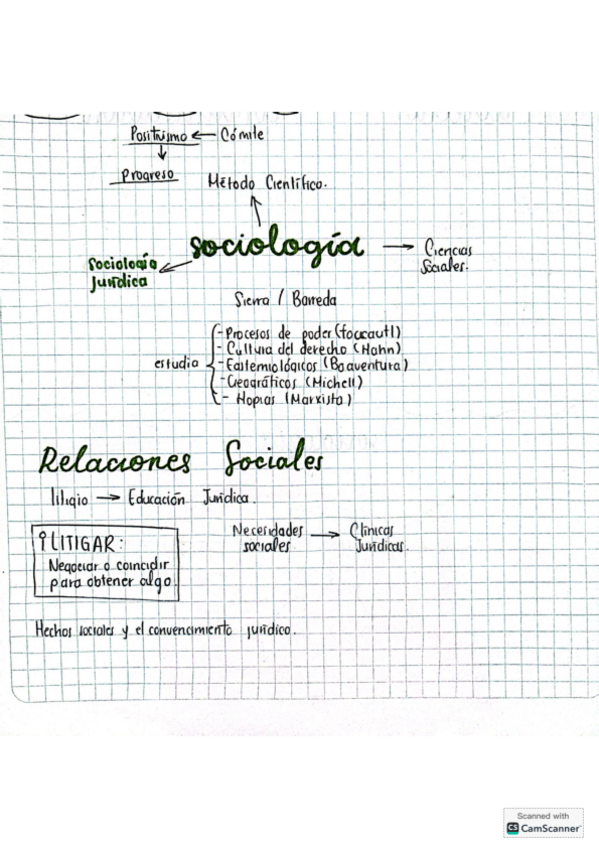 Positivismo ← Cómite
↓
Progreso
Método Científico.
↑
sociología → Ciencias
Sociales.
Sociología
Jurídica
Sierra / Barreda
estudia
- Procesos de poder (foccautl)
- Cultura del derecho (Hahn)
- Epistemiológicos (Boaventura)
- Geográficos (Michell)
- Hopias (Marxista)
Relaciones Sociales
litigio → Educación Jurídica.
LITIGAR:
Negociar o coincidir
para obtener algo.
Necesidades → Clínicas
sociales Jurídicas.
Hechos sociales y el convencimiento jurídico.
Scanned with
CS CamScanner